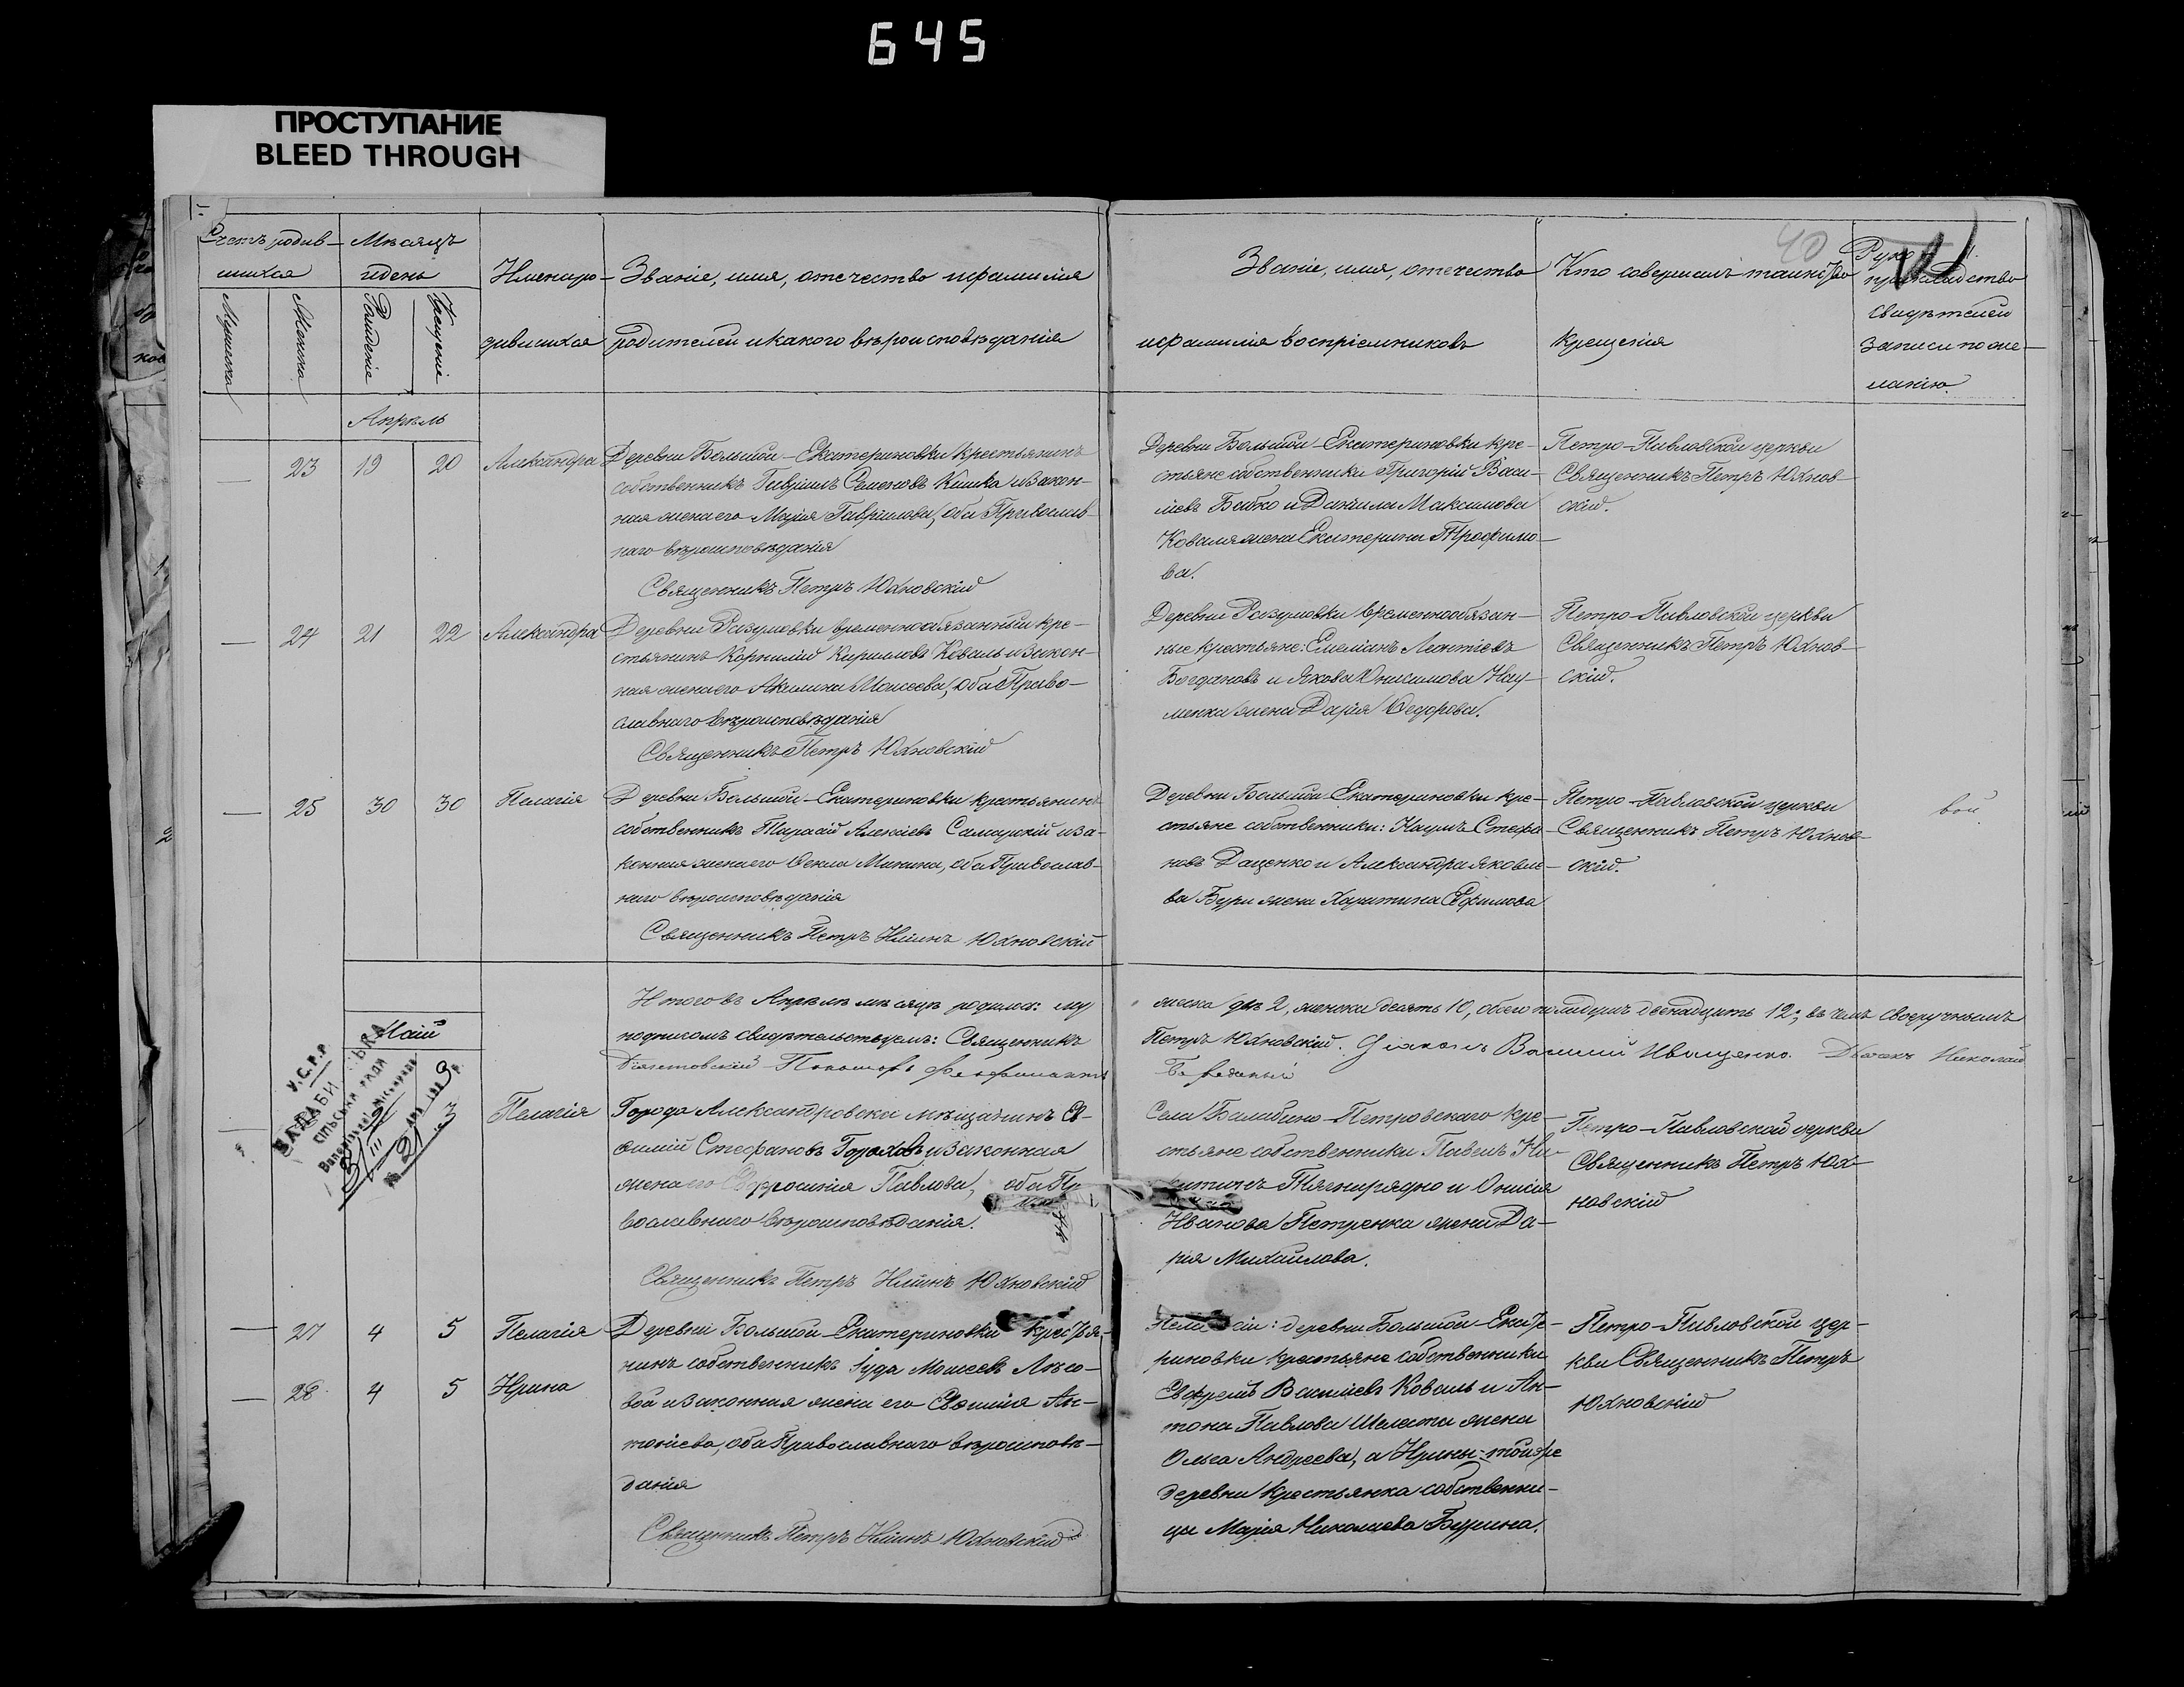 645
ПРОСТУПАНИЕ
BLEED THROUGH
40
Счетъ родив-
шихся
Мужеска
Женска
Мѣсяцъ
и день
Рожденіе
Крещеніе
Имена ро-
дившихся
Званіе, имя, отечество и фамилія
родителей и какого вѣроисповѣданія
Званіе, имя, отечество
и фамилія воспріемниковъ
Кто совершилъ таинство
крещенія
Руко-
прикладство
свидѣтелей
записи по же-
ланію.
Апрѣль
— 23 19 20 Александра
Деревни Большой-Екатериновки крестьянинъ
собственникъ Гавріилъ Семеновъ Кишка и закон-
ная жена его Марія Гавріилова, оба Православ-
наго вѣроисповѣданія
Священникъ Петръ Юхновскій
Деревни Большой-Екатериновки кре-
стьяне собственники Григорій Васи-
ліевъ Бабко и Даніила Максимова
Коваля жена Екатерина Трофимо-
ва.
Петро-Павловской церкви
Священникъ Петръ Юхнов-
скій.
— 24 21 22 Александра
Деревни Разумовки временнообязанный кре-
стьянинъ Корнилій Кирилловъ Коваль и закон-
ная жена его Акилина Моисеева, оба Право-
славнаго вѣроисповѣданія
Священникъ Петръ Юхновскій
Деревни Разумовки временнообязан-
ные крестьяне: Емеліанъ Леонтіевъ
Богдановъ и Якова Онисимова Нау-
менка жена Дарія Ѳедорова.
Петро-Павловской церкви
Священникъ Петръ Юхнов-
скій.
— 25 30 30 Пелагія
Деревни Большой-Екатериновки крестьянинъ
собственникъ Тарасій Алексіевъ Самарскій и за-
конная жена его Ѳекла Минина, оба Православ-
наго вѣроисповѣданія
Священникъ Петръ Іліинъ Юхновскій
Деревни Большой-Екатериновки кре-
стьяне собственники: Наумъ Стефа-
новъ Даценко и Александра Яковле-
ва Бури жена Харитина Ефимова
Петро-Павловской церкви
Священникъ Петръ Юхнов-
скій.
вой
Итого въ Апрѣлѣ мѣсяцѣ родилось: му
жеска два 2, женска десять 10, обоего пола двенадцать 12; въ чемъ своеручнымъ
подписомъ свидѣтельствуемъ: Священникъ
Петръ Юхновскій. Діаконъ Василій Иващенко. Дьячекъ Николай
Пономарь
Май
У.С.Р.Р.
— 3 Пелагія
Города Александровска мѣщанинъ Ва-
силій Стефановъ Гороховъ и законная
жена его Евфросинія Павлова, оба Пра
вославнаго вѣроисповѣданія.
Священникъ Петръ Іліинъ Юхновскій
Села Балабино-Петровскаго кре-
стьяне собственники Павелъ Ни-
китинъ Тягнирядно и
Иванова Петренка жена Да-
рія Михайлова.
Петро-Павловской церкви
Священникъ Петръ Юх-
новскій
— 27 4 5 Пелагія
— 28 4 5 Ирина
Деревни Большой-Екатериновки крестья-
нинъ собственникъ Іуда Моисеевъ Лѣсо-
вой и законная жена его Евфимія Ан-
тоніева, оба Православнаго вѣроисповѣ-
данія
Священникъ Петръ Іліинъ Юхновскій
деревни Большой-Екате-
риновки крестьяне собственники
Евфремъ Василіевъ Коваль и Ан-
тона Павлова Шелеста жена
Ольга Андреева, а Ирины: той же
деревни крестьянка собственни-
цы Марія Николаева Бурина.
Петро-Павловской цер-
кви Священникъ Петръ
Юхновскій